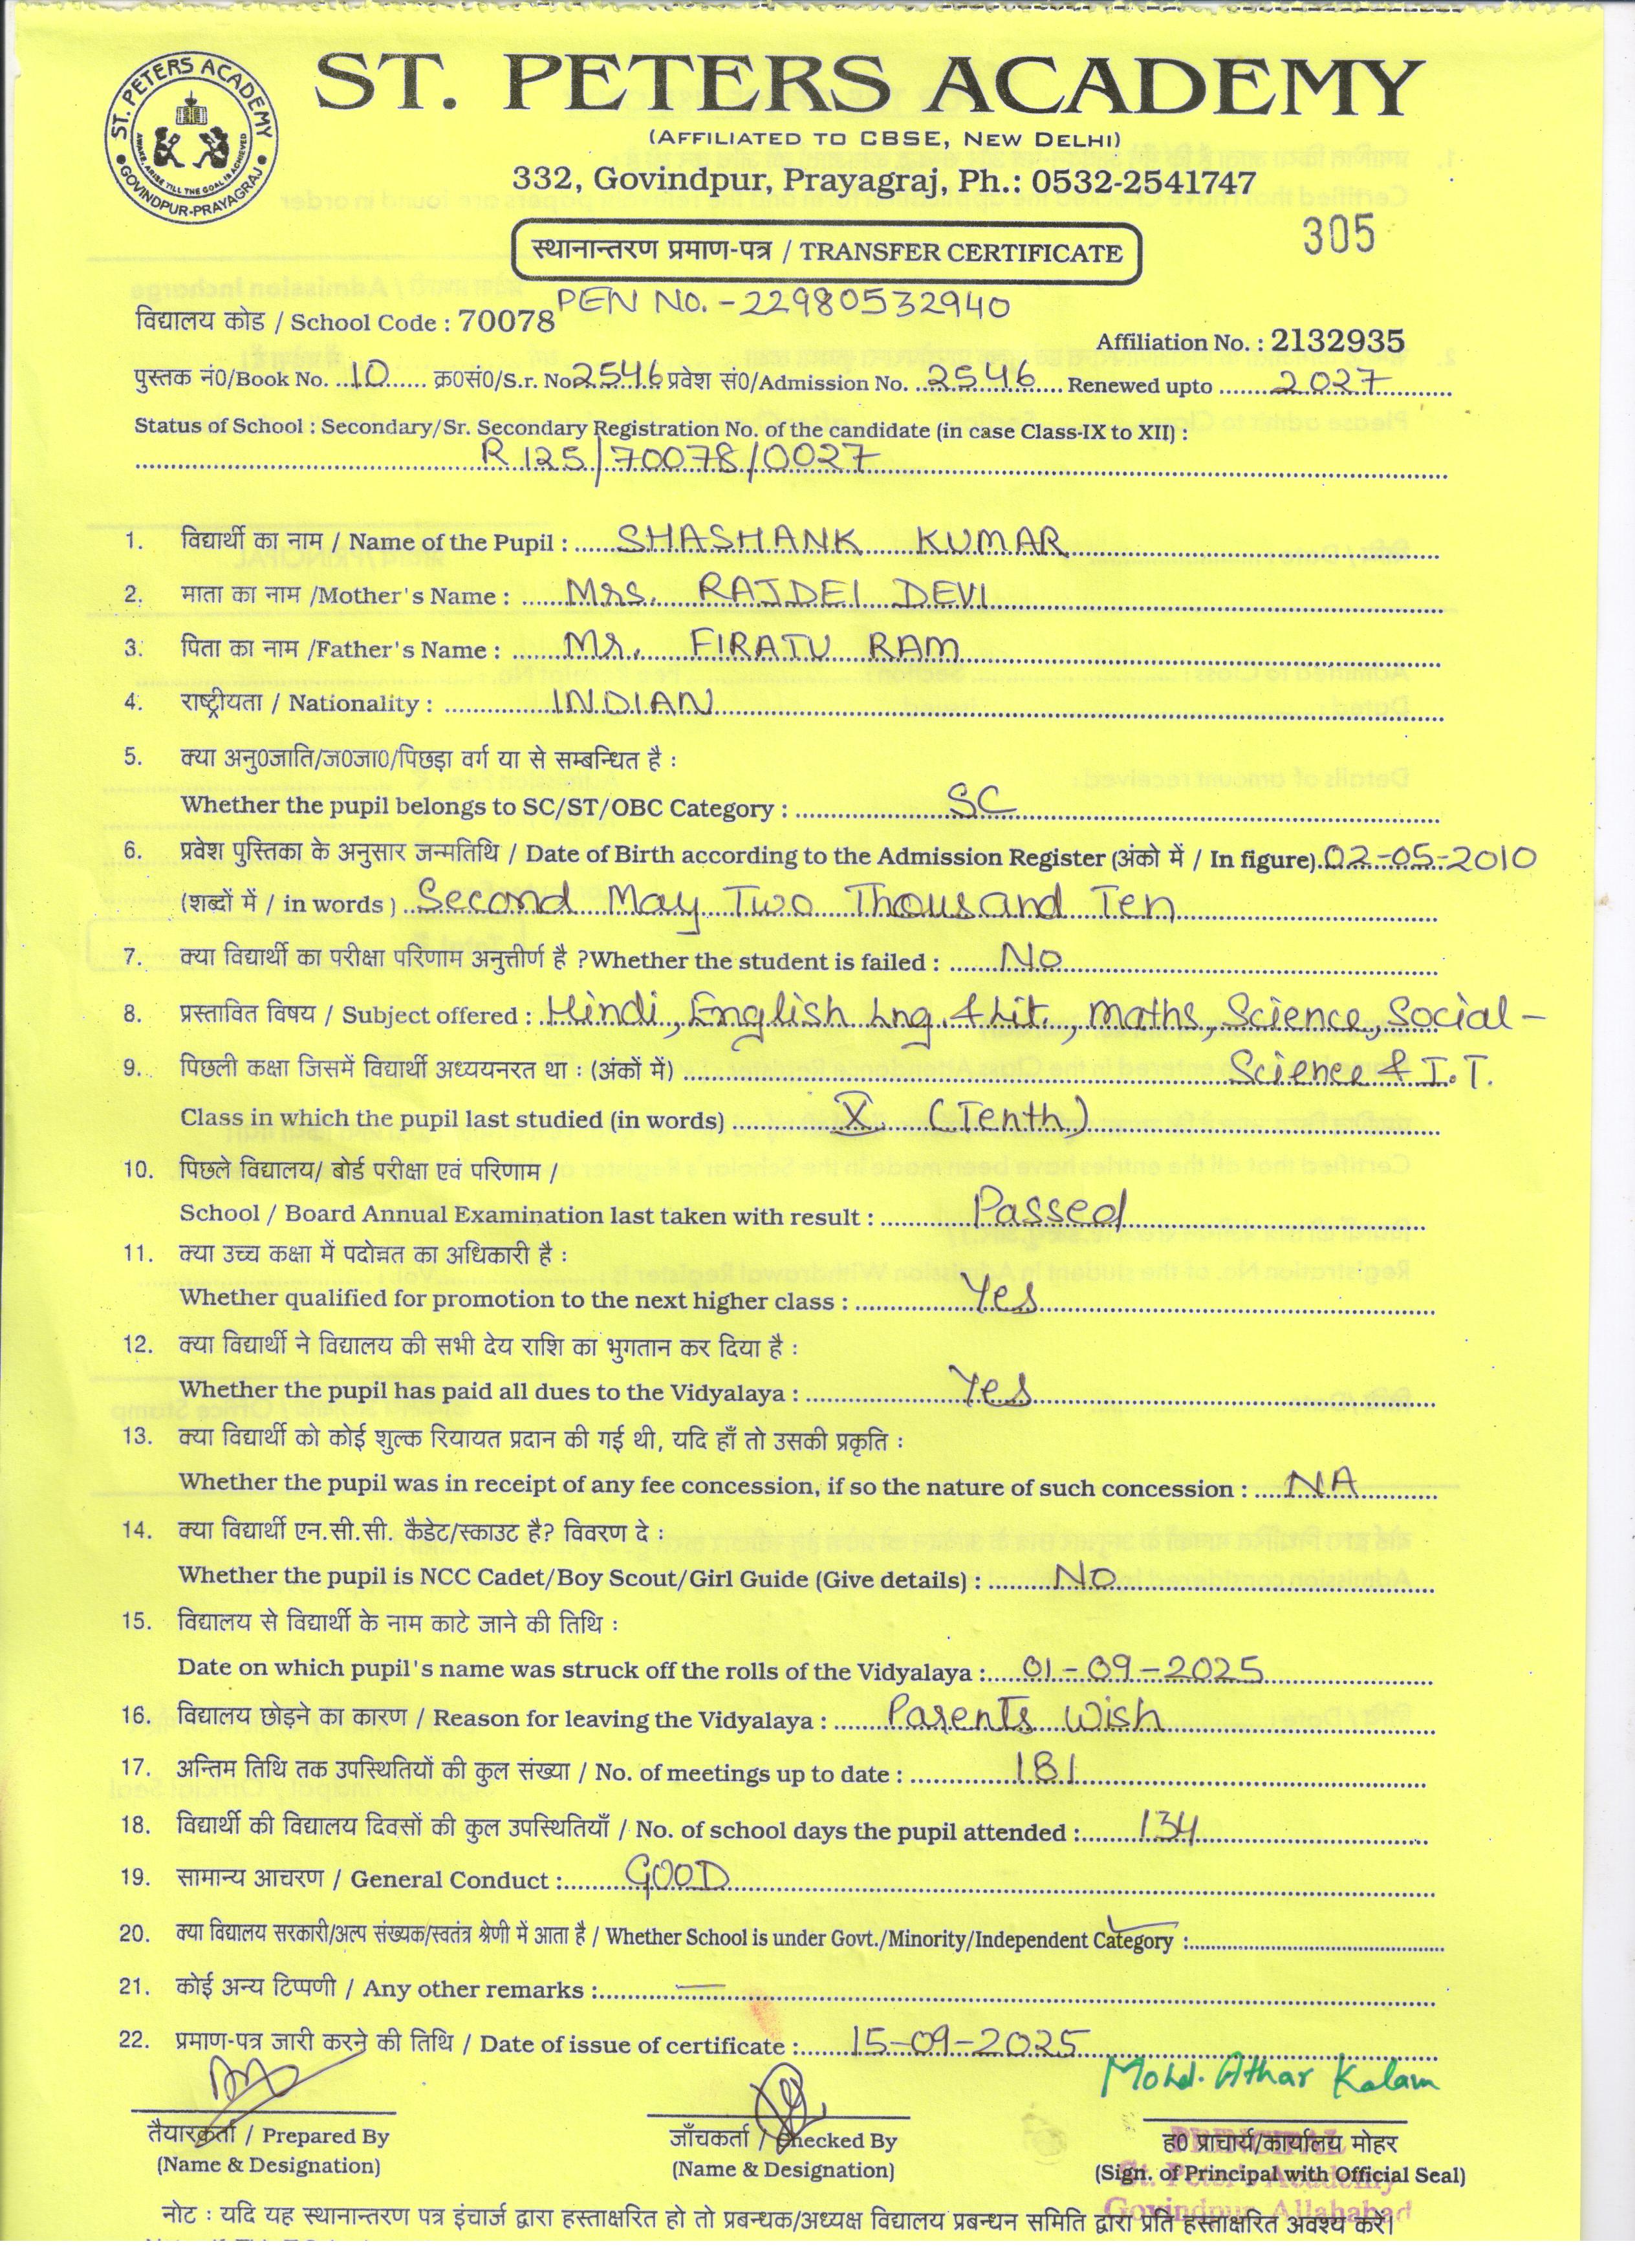 ST. PETERS ACADEMY
GOVINDPUR-PRAYAGRAJ
AWAKE, ARISE TILL THE GOAL IS ACHIEVED
ST. PETERS ACADEMY
(AFFILIATED TO CBSE, NEW DELHI)
332, Govindpur, Prayagraj, Ph.: 0532-2541747
305
स्थानान्तरण प्रमाण-पत्र / TRANSFER CERTIFICATE
PEN NO. - 22980532940
विद्यालय कोड / School Code : 70078
Affiliation No. : 2132935
पुस्तक नं0/Book No. ..10...... क्र0सं0/S.r. No.2546 प्रवेश सं0/Admission No. ..2546.... Renewed upto ......2027........
Status of School : Secondary/Sr. Secondary Registration No. of the candidate (in case Class-IX to XII) :
R 125/70078/0027
1. विद्यार्थी का नाम / Name of the Pupil : SHASHANK KUMAR
2. माता का नाम /Mother's Name : Mrs. RAJDEI DEVI
3. पिता का नाम /Father's Name : Mr. FIRATU RAM
4. राष्ट्रीयता / Nationality : INDIAN
5. क्या अनु0जाति/ज0जा0/पिछड़ा वर्ग या से सम्बन्धित है :
Whether the pupil belongs to SC/ST/OBC Category : SC
6. प्रवेश पुस्तिका के अनुसार जन्मतिथि / Date of Birth according to the Admission Register (अंको में / In figure).02-05-2010
(शब्दों में / in words) Second May Two Thousand Ten
7. क्या विद्यार्थी का परीक्षा परिणाम अनुत्तीर्ण है ?Whether the student is failed : No
8. प्रस्तावित विषय / Subject offered : Hindi, English Lng. & Lit., Maths, Science, Social -
9. पिछली कक्षा जिसमें विद्यार्थी अध्ययनरत था : (अंकों में) Science & I.T.
Class in which the pupil last studied (in words) X (Tenth)
10. पिछले विद्यालय/ बोर्ड परीक्षा एवं परिणाम /
School / Board Annual Examination last taken with result : Passed
11. क्या उच्च कक्षा में पदोन्नत का अधिकारी है :
Whether qualified for promotion to the next higher class : Yes
12. क्या विद्यार्थी ने विद्यालय की सभी देय राशि का भुगतान कर दिया है :
Whether the pupil has paid all dues to the Vidyalaya : Yes
13. क्या विद्यार्थी को कोई शुल्क रियायत प्रदान की गई थी, यदि हाँ तो उसकी प्रकृति :
Whether the pupil was in receipt of any fee concession, if so the nature of such concession : NA
14. क्या विद्यार्थी एन.सी.सी. कैडेट/स्काउट है? विवरण दे :
Whether the pupil is NCC Cadet/Boy Scout/Girl Guide (Give details) : NO
15. विद्यालय से विद्यार्थी के नाम काटे जाने की तिथि :
Date on which pupil's name was struck off the rolls of the Vidyalaya : 01-09-2025
16. विद्यालय छोड़ने का कारण / Reason for leaving the Vidyalaya : Parents Wish
17. अन्तिम तिथि तक उपस्थितियों की कुल संख्या / No. of meetings up to date : 181
18. विद्यार्थी की विद्यालय दिवसों की कुल उपस्थितियाँ / No. of school days the pupil attended : 134
19. सामान्य आचरण / General Conduct : GOOD
20. क्या विद्यालय सरकारी/अल्प संख्यक/स्वतंत्र श्रेणी में आता है / Whether School is under Govt./Minority/Independent Category :
21. कोई अन्य टिप्पणी / Any other remarks : —
22. प्रमाण-पत्र जारी करने की तिथि / Date of issue of certificate : 15-09-2025
Mohd. Athar Kalam
तैयारकर्ता / Prepared By
(Name & Designation)
जाँचकर्ता / Checked By
(Name & Designation)
ह0 प्राचार्य/कार्यालय मोहर
(Sign. of Principal with Official Seal)
PRINCIPAL
St. Peter's Academy
Govindpur, Allahabad
नोट : यदि यह स्थानान्तरण पत्र इंचार्ज द्वारा हस्ताक्षरित हो तो प्रबन्धक/अध्यक्ष विद्यालय प्रबन्धन समिति द्वारा प्रति हस्ताक्षरित अवश्य करें।